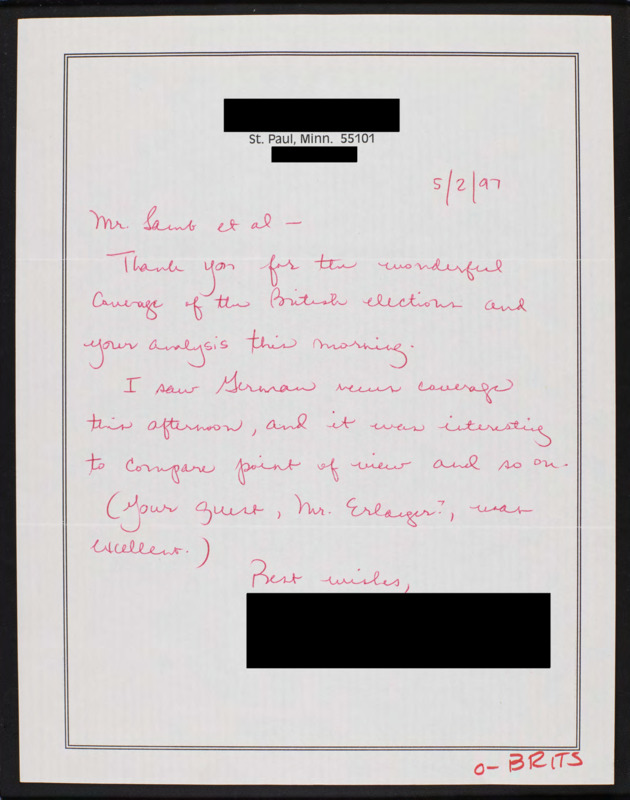 St. Paul, Minn. 55101
5/2/97
Mr. Lamb et al —
Thank you for the wonderful
coverage of the British elections and
your analysis this morning.
I saw German news coverage
this afternoon, and it was interesting
to compare point of view and so on.
(Your guest, Mr. Erlanger?, was
excellent.)
Best wishes,
O- BRITS